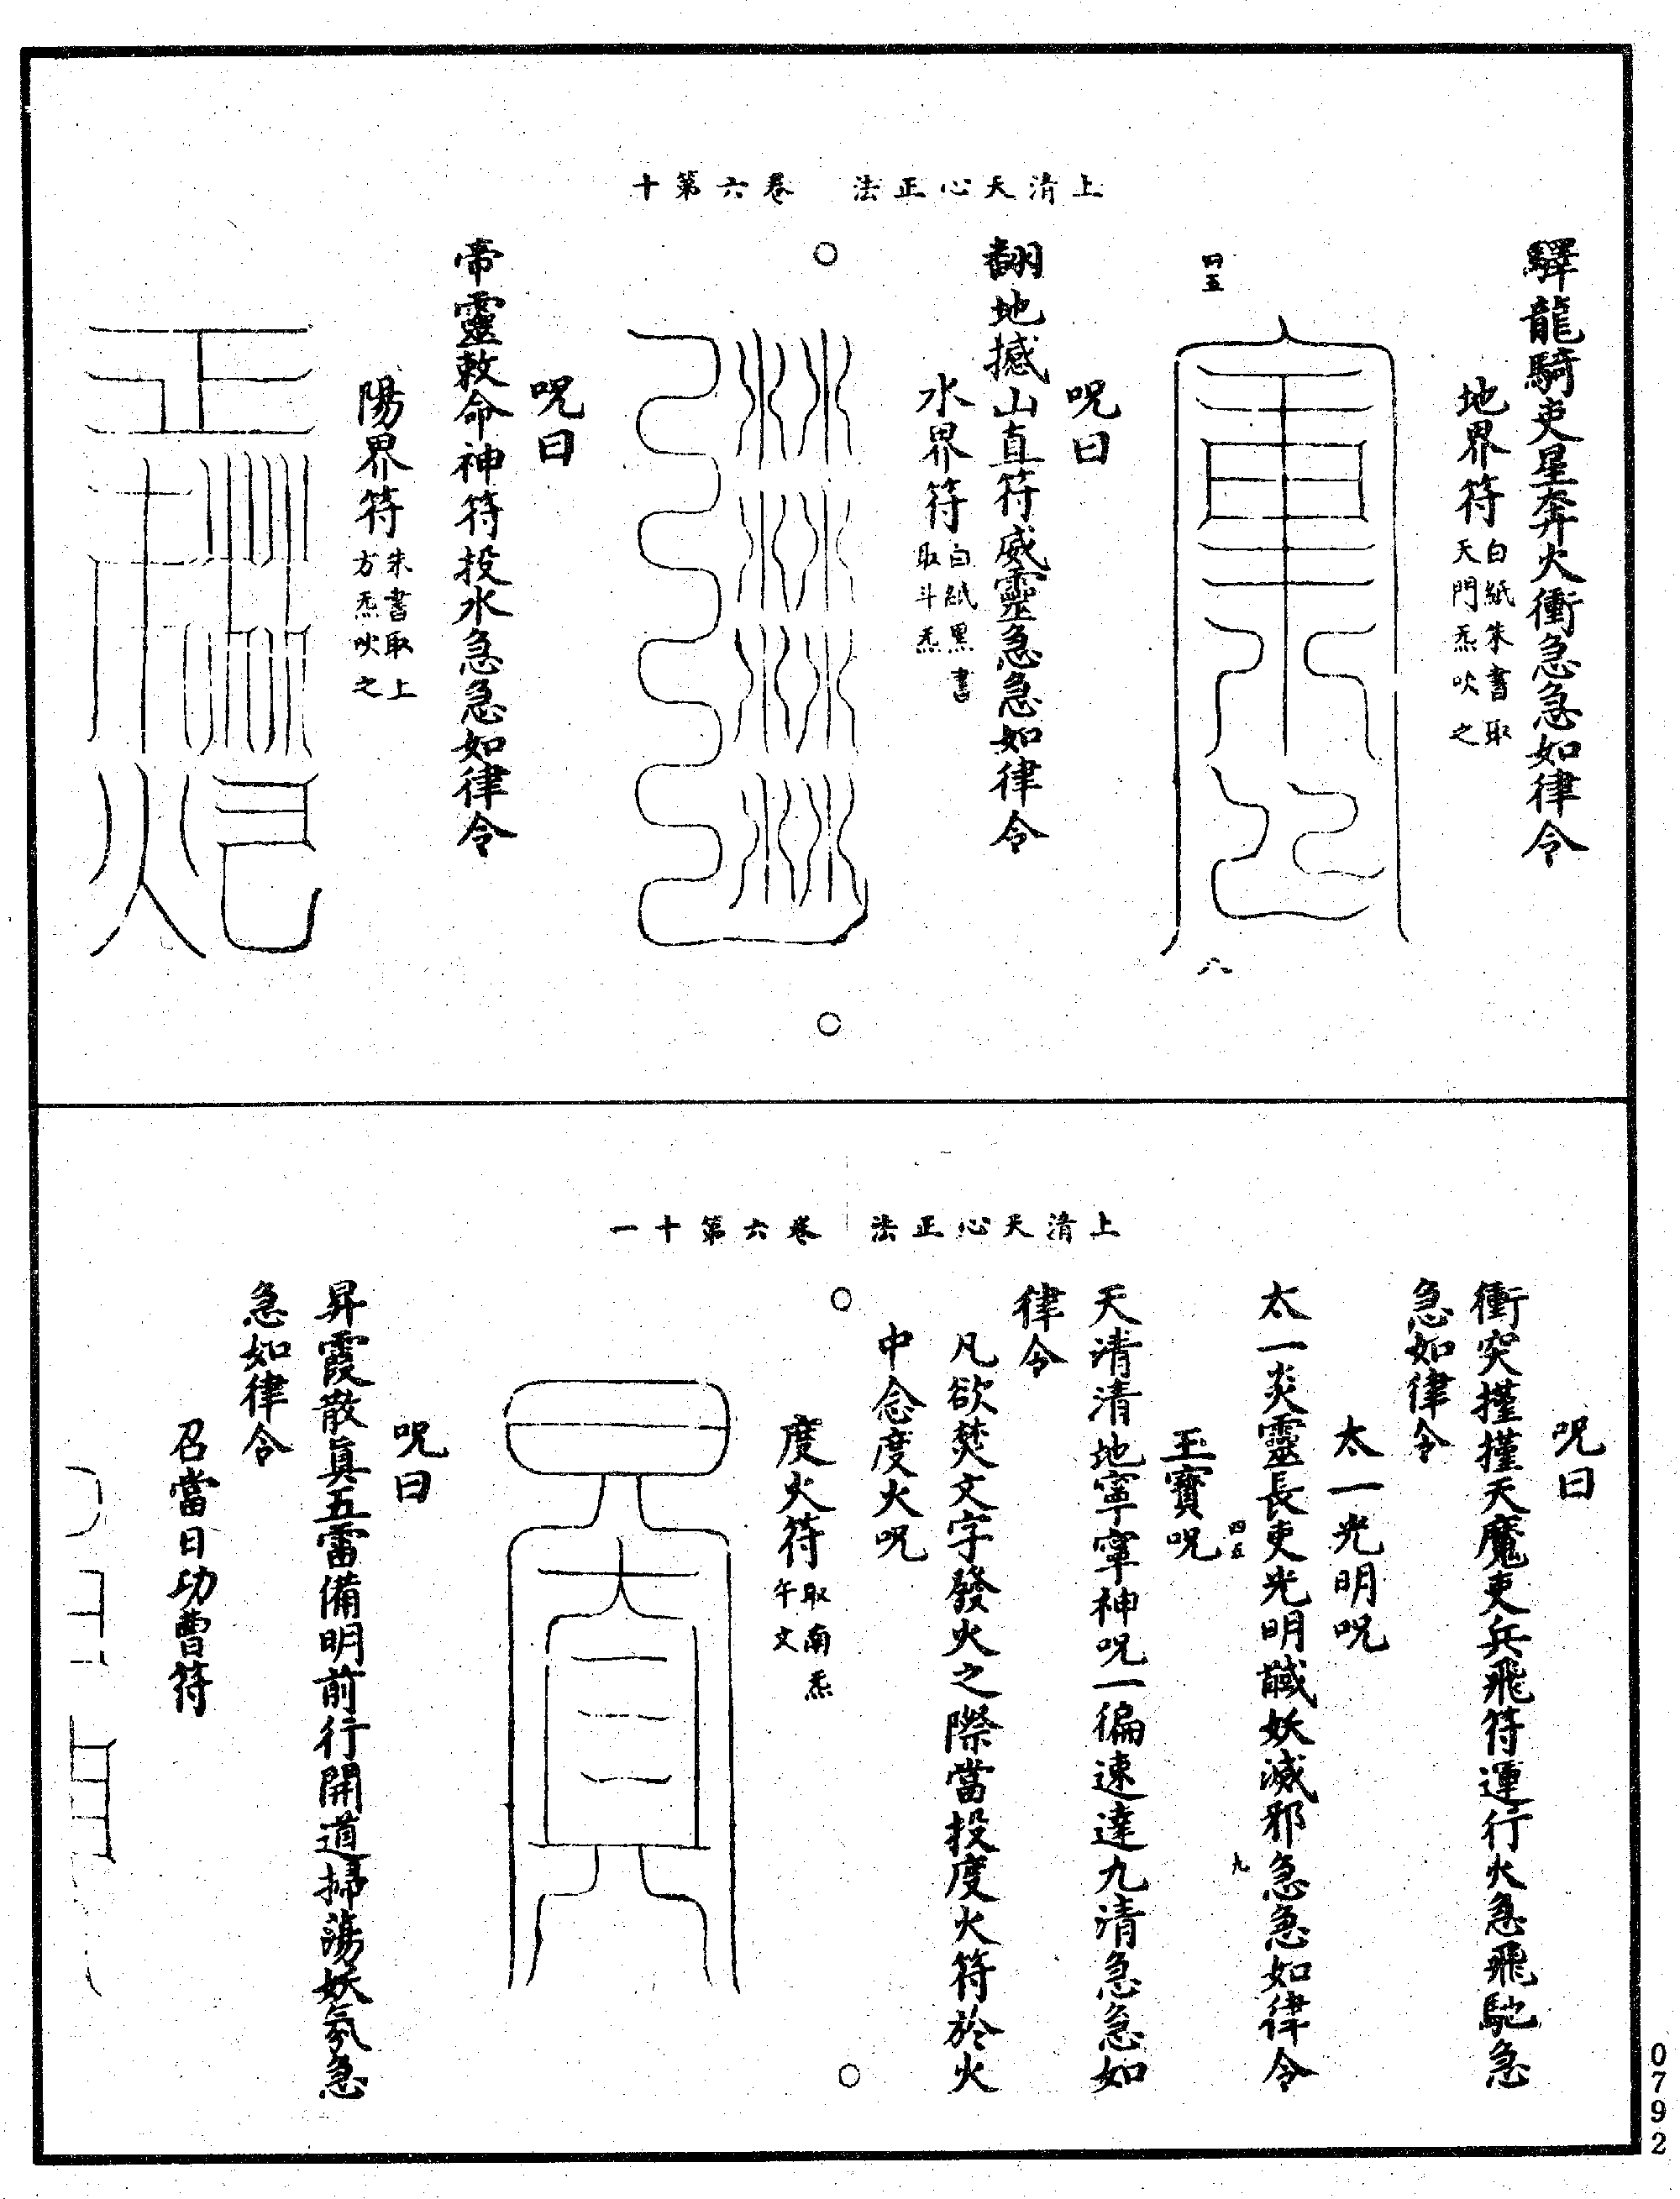 上清天心正法　卷六第十
驛龍騎吏星奔火衝急急如律令
地界符白紙朱書取天門炁吹之
四五
八
呪曰
翻地撼山直符威靈急急如律令
水界符白紙黑書取斗炁
呪曰
帝靈敕命神符投水急急如律令
陽界符朱書取上方炁吹之
上清天心正法　卷六第十一
呪曰
衝突摧摧天魔吏兵飛符運行火急飛馳急
急如律令
太一光明呪
太一炎靈長吏光明馘妖滅邪急急如律令
四五
九
玉寶呪
天清清地寧寧神呪一徧速達九清急急如
律令
凡欲焚文字發火之際當投度火符於火
中念度火呪
度火符取南炁午文
呪曰
昇霞散真五雷備明前行開道掃蕩妖氛急
急如律令
召當日功曹符
0792